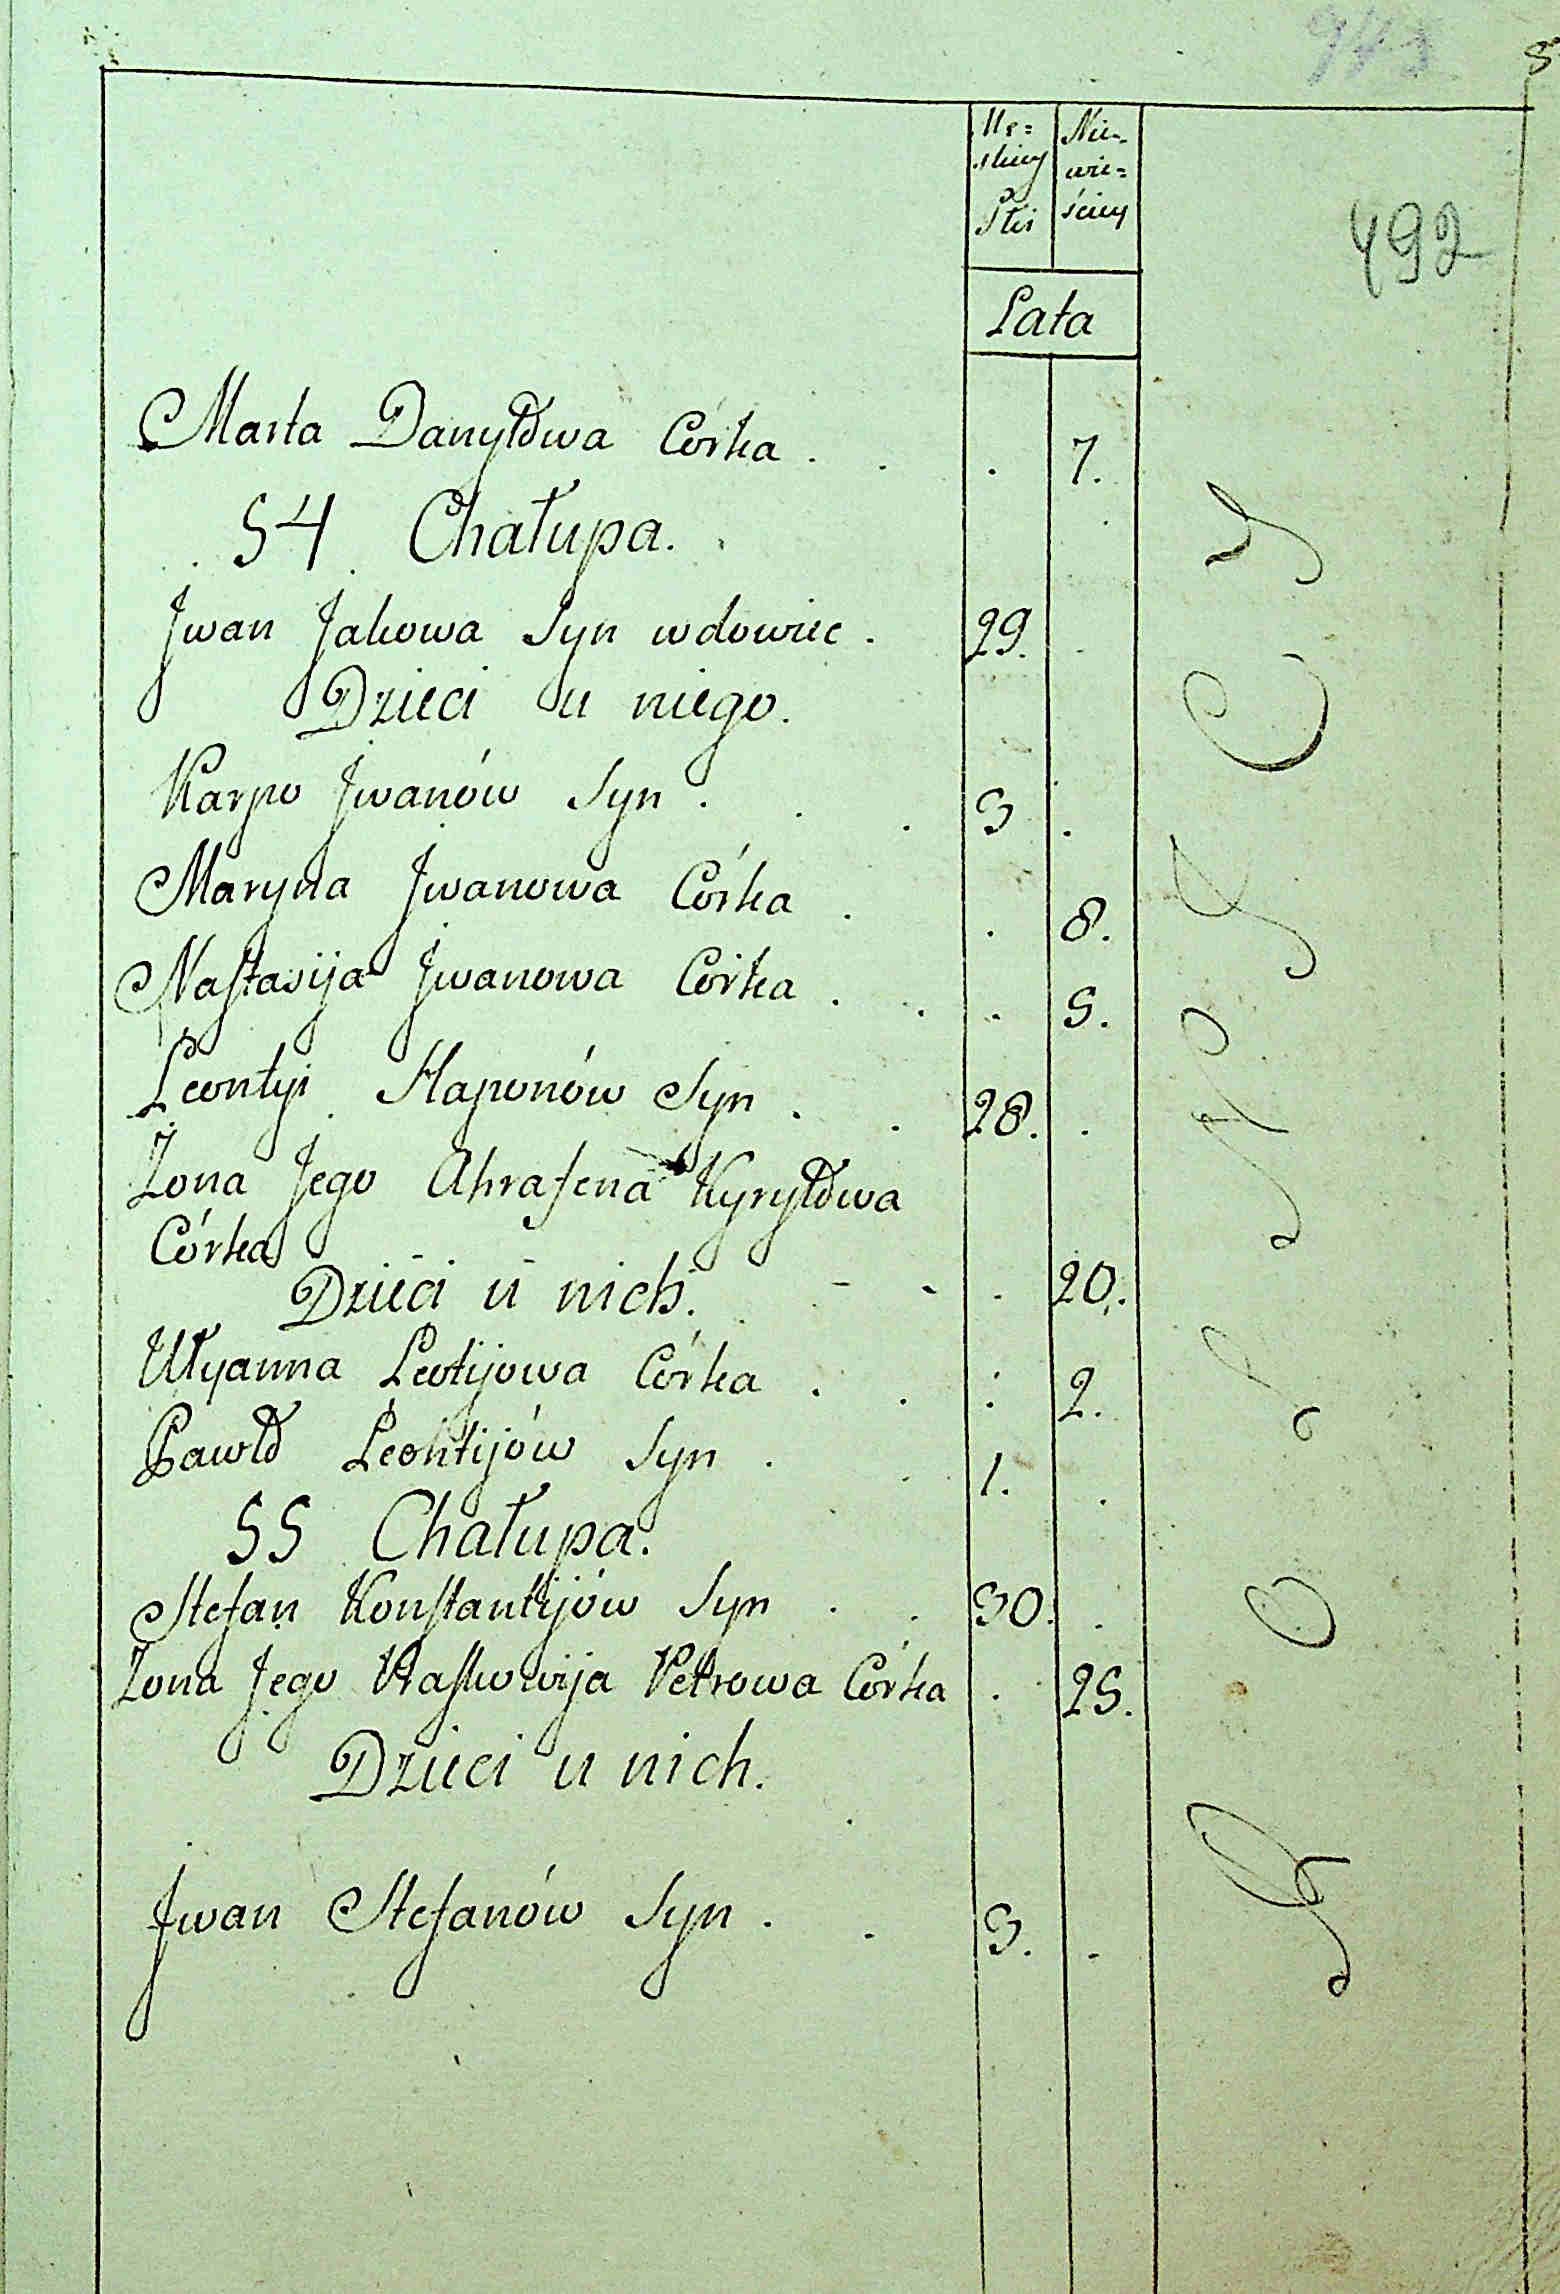 492
Mę= Nie-
skiey wie=
Płci ściey
Lata
Marta Danyłowa Córka . . . 7.
54 Chałupa.
Jwan Jakowa Syn wdowiec . 29. .
Dzieci u niego.
Karpo Jwanów Syn . . . 3 .
Maryna Jwanowa Córka . . 8.
Nastasija Jwanowa Córka . . . 5.
Leontyi Haponów Syn . . 28. .
Żona Jego Ahrafena Kyryłowa
Córka - - . 20.
Dzieci u nich.
Ułyanna Leotijowa Córka . . . 2.
Pawło Leontijów Syn . . 1. .
55 Chałupa.
Stefan Konstantijów Syn . . 30. .
Żona Jego Paskowija Petrowa Córka . 25.
Dzieci u nich.
Jwan Stefanów Syn . . 3. .